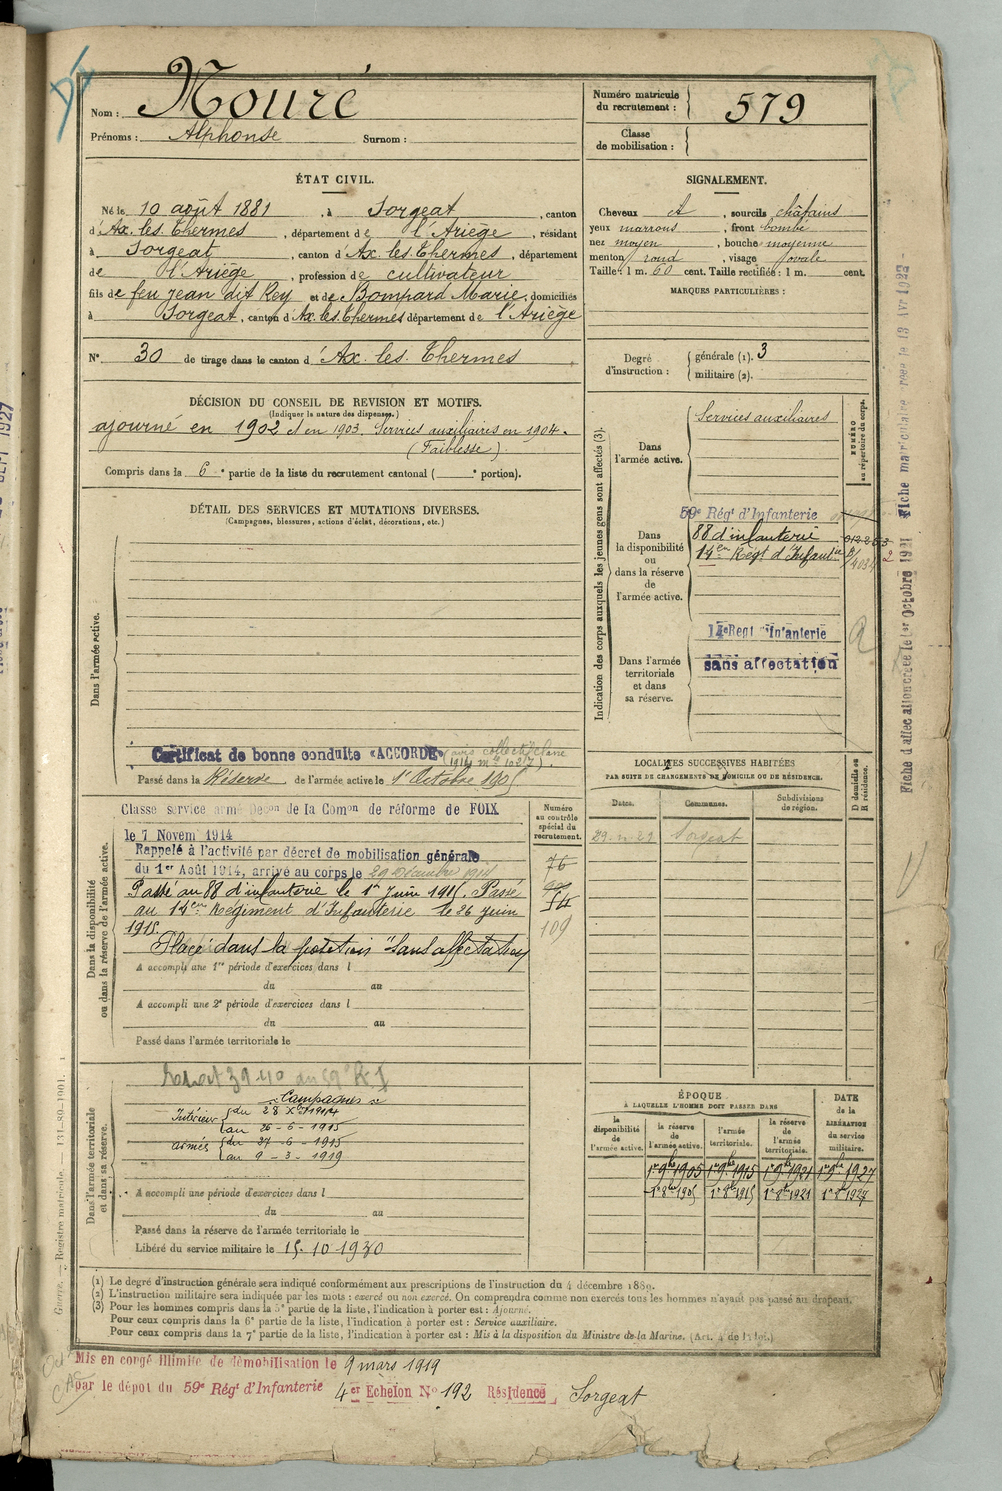 Nom : Nouré
Prénoms : Alphonse Surnom :
Numéro matricule
du recrutement : 579
Classe
de mobilisation :
ÉTAT CIVIL.
Né le 10 août 1881, à Sorgeat, canton
d'Ax. les. Thermes, département de l'Ariège, résidant
à Sorgeat, canton d'Ax. les. Thermes, département
de l'Ariège, profession de cultivateur
fils de feu Jean dit Rey et de Bompard Marie, domiciliés
à Sorgeat, canton d'Ax. les. Thermes département de l'Ariège
N° 30 de tirage dans le canton d'Ax. les. Thermes
SIGNALEMENT.
Cheveux et, sourcils châtains
yeux marrons, front bombé
nez moyen, bouche moyenne
menton rond, visage ovale
Taille: 1 m. 60 cent. Taille rectifiée : 1 m. cent.
MARQUES PARTICULIÈRES :
Degré
d'instruction :
générale (1). 3
militaire (2).
DÉCISION DU CONSEIL DE REVISION ET MOTIFS.
(Indiquer la nature des dispenses.)
ajourné en 1902 et en 1903. Services auxiliaires en 1904.
(Faiblesse)
Compris dans la 6e partie de la liste du recrutement cantonal ( e portion).
DÉTAIL DES SERVICES ET MUTATIONS DIVERSES.
(Campagnes, blessures, actions d'éclat, décorations, etc.)
Dans l'armée active.
Certificat de bonne conduite «ACCORDÉ»
Passé dans la Réserve de l'armée active le 1er Octobre 1905
Indication des corps auxquels les jeunes gens sont affectés (3).
NUMÉRO
au répertoire du corps.
Dans
l'armée active.
Services auxiliaires
Dans
la disponibilité
ou
dans la réserve
de
l'armée active.
59e Régt d'Infanterie
88 d'infanterie
14eme Régt d'Infantie
Dans l'armée
territoriale
et dans
sa réserve.
14e Regt d'Infanterie
sans affectation
Dans la disponibilité
ou dans la réserve de l'armée active.
Classé service armé Décon de la Comon de réforme de FOIX
le 7 Novem 1914
Rappelé à l'activité par décret de mobilisation générale
du 1er Août 1914, arrivé au corps le 29 Décembre 1914
Passé au 88 d'infanterie le 1er Juin 1915. Passé
au 14eme Régiment d'Infanterie le 26 juin
1915.
Placé dans la position "sans affectation"
A accompli une 1re période d'exercices dans l
du au
A accompli une 2e période d'exercices dans l
du au
Passé dans l'armée territoriale le
Numéro
au contrôle
spécial du
recrutement.
76
54
109
LOCALITÉS SUCCESSIVES HABITÉES
PAR SUITE DE CHANGEMENTS DE DOMICILE OU DE RÉSIDENCE.
Dates.
Communes.
Subdivisions
de région.
D domicile ou
R résidence.
Sorgeat
Dans l'armée territoriale
et dans sa réserve.
Campagnes
Intérieur du 28 Xbre 1914
au 26 - 6 - 1915
armées du 27 - 6 - 1915
au 9 - 3 - 1919
A accompli une période d'exercices dans l
du au
Passé dans la réserve de l'armée territoriale le
Libéré du service militaire le 15. 10 - 1930
ÉPOQUE
À LAQUELLE L'HOMME DOIT PASSER DANS
la
disponibilité
de
l'armée active.
la réserve
de
l'armée active.
l'armée
territoriale.
la réserve
de
l'armée
territoriale.
DATE
de la
LIBÉRATION
du service
militaire.
1er 9bre 1905 1er 9bre 1915 1er 9bre 1921 1er 9bre 1927
1er 8bre 1905 1er 8bre 1915 1er 8bre 1921 1er 8bre 1927
(1) Le degré d'instruction générale sera indiqué conformément aux prescriptions de l'instruction du 4 décembre 1889.
(2) L'instruction militaire sera indiquée par les mots : exercé ou non exercé. On comprendra comme non exercés tous les hommes n'ayant pas passé au drapeau.
(3) Pour les hommes compris dans la 5e partie de la liste, l'indication à porter est : Ajourné.
Pour ceux compris dans la 6e partie de la liste, l'indication à porter est : Service auxiliaire.
Pour ceux compris dans la 7e partie de la liste, l'indication à porter est : Mis à la disposition du Ministre de la Marine. (Art. 4 de la loi.)
Mis en congé illimité de démobilisation le 9 mars 1919
par le dépot du 59e Régt d'Infanterie 4er Echelon No 192 Résidence Sorgeat
Guerre. — Registre matricule. 131-89-1901.
Fiche d'affec alloncreée le 1er Octobre 1921 Fiche matriculaire creee le 13 Avr 1922